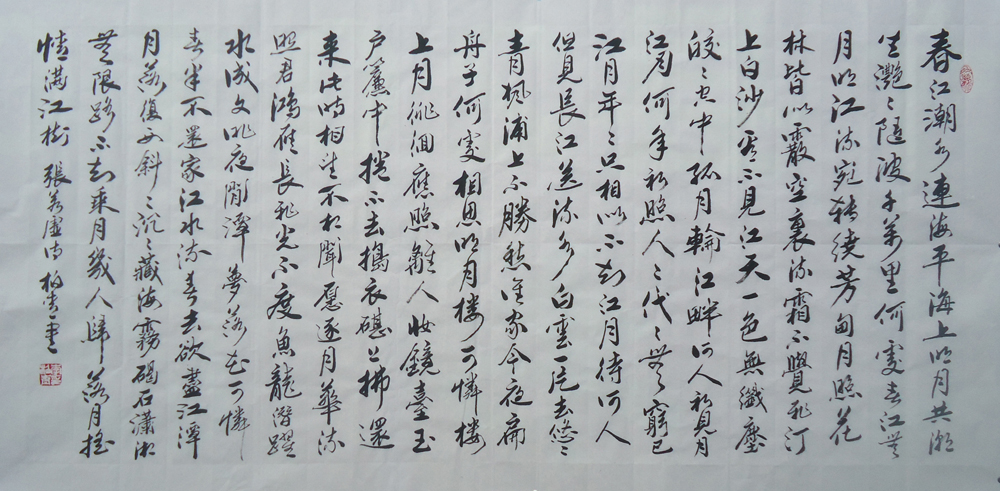 春江潮水連海平海上明月共潮
生灧〻隨波千萬里何處春江無
月明江流宛轉繞芳甸月照花
林皆似霰空裏流霜不覺飛汀
上白沙看不見江天一色無纖塵
皎〻空中孤月輪江畔何人初見月
江月何年初照人〻代〻無窮已
江月年〻只相似不知江月待何人
但見長江送流水白雲一片去悠〻
青楓浦上不勝愁誰家今夜扁
舟子何處相思明月樓可憐樓
上月徘徊應照離人妝鏡臺玉
戶簾中捲不去搗衣砧上拂還
來此時相望不相聞願逐月華流
照君鴻雁長飛光不度魚龍潛躍
水成文昨夜閒潭夢落花可憐
春半不還家江水流春去欲盡江潭
月落復西斜〻沉〻藏海霧碣石瀟湘
無限路不知乘月幾人歸落月搖
情滿江樹 張若虛詩 書